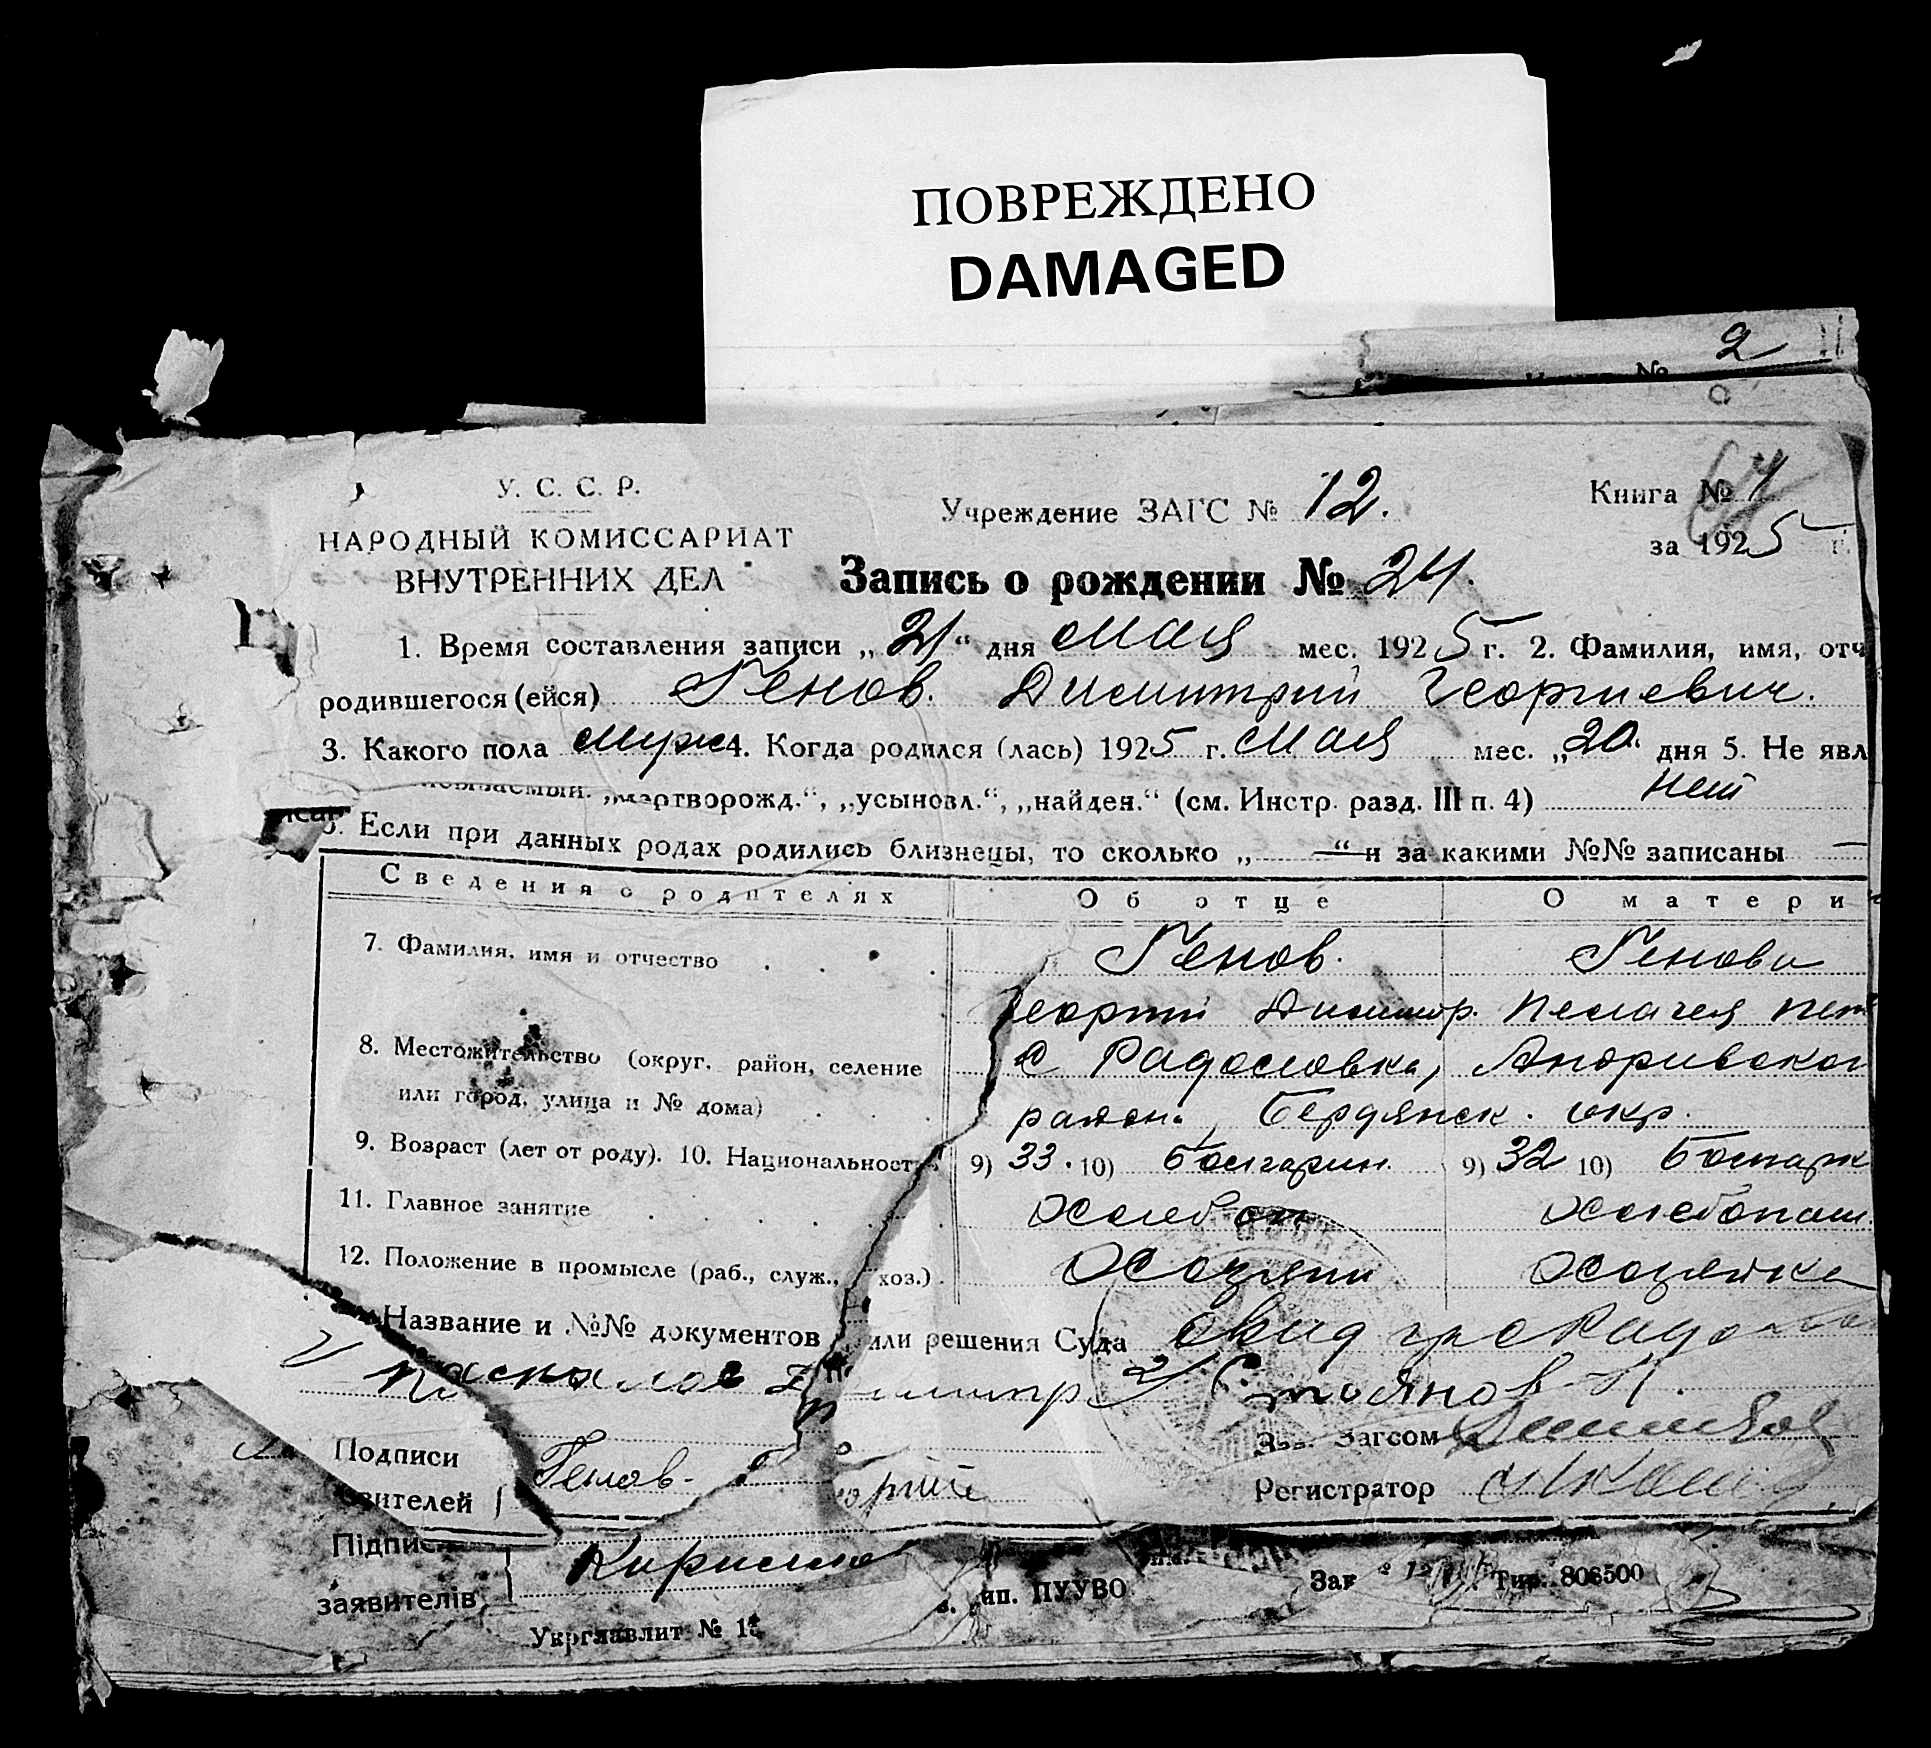 ПОВРЕЖДЕНО
DAMAGED
2
№
У. С. С. Р.
НАРОДНЫЙ КОМИССАРИАТ
ВНУТРЕННИХ ДЕЛ
Учреждение ЗАГС № 12.
Книга №
за 1925 г.
Запись о рождении № 24.
1. Время составления записи „21“ дня мая мес. 1925 г. 2. Фамилия, имя, отч
родившегося (ейся) Генов. Димитрий Георгиевич.
3. Какого пола муж 4. Когда родился (лась) 1925 г. мая мес. „20“ дня 5. Не явл
„мертворожд.“, „усыновл.“, „найден.“ (см. Инстр. разд. III п. 4) нет
6. Если при данных родах родились близнецы, то сколько „—“ и за какими №№ записаны —
Сведения о родителях Об отце О матери
7. Фамилия, имя и отчество Генов. Генова
Георгий Димитр. Пелагея Пет
8. Местожительство (округ, район, селение С Радоловка, Андривског
или город, улица и № дома) район., Бердянск. окр.
9. Возраст (лет от роду). 10. Национальност 9) 33. 10) болгарин. 9) 32 10) болгарк
11. Главное занятие Хлебоп Хлебопаш
12. Положение в промысле (раб., служ., хоз.) Хозяин Хозяйка
Название и №№ документов или решения Суда
Димитр Стоянов
Подписи
вителей Генов. оргий
Зав. Загсом
Регистратор
Підпис
заявителів
Зак Тир. 806500
ип. ПУУВО
Укрглавлит №